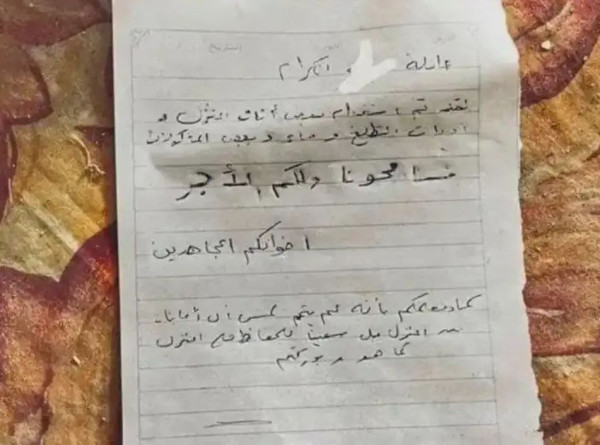 عائلة الكرام
لقد تم استخدام بعض أثاث المنزل و
أدوات المطبخ و ماء و بعض المأكولات
فسامحونا ولكم الأجر
اخوانكم المجاهدين
كما نعلمكم بأنه لم يتم لمس أي أمانات
المنزل بل سعينا للحفاظ على المنزل
كما هو